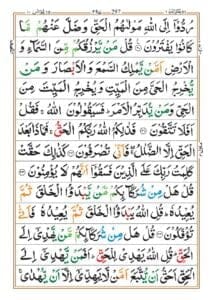 رُدُّوْۤا اِلَى اللّٰهِ مَوْلٰىهُمُ الْحَقِّ وَضَلَّ عَنْهُمْ مَّا
كَانُوْا يَفْتَرُوْنَ ۝ قُلْ مَنْ يَّرْزُقُكُمْ مِّنَ السَّمَآءِ وَ
الْاَرْضِ اَمَّنْ يَّمْلِكُ السَّمْعَ وَالْاَبْصَارَ وَمَنْ
يُّخْرِجُ الْحَيَّ مِنَ الْمَيِّتِ وَيُخْرِجُ الْمَيِّتَ مِنَ
الْحَيِّ وَمَنْ يُّدَبِّرُ الْاَمْرَ ؕ فَسَيَقُوْلُوْنَ اللّٰهُ ۚ فَقُلْ
اَفَلَا تَتَّقُوْنَ ۝ فَذٰلِكُمُ اللّٰهُ رَبُّكُمُ الْحَقُّ ۚ فَمَاذَا بَعْدَ
الْحَقِّ اِلَّا الضَّلٰلُ ۖۚ فَاَنّٰى تُصْرَفُوْنَ ۝ كَذٰلِكَ حَقَّتْ
كَلِمَتُ رَبِّكَ عَلَى الَّذِيْنَ فَسَقُوْۤا اَنَّهُمْ لَا يُؤْمِنُوْنَ ۝
قُلْ هَلْ مِنْ شُرَكَآئِكُمْ مَّنْ يَّبْدَؤُا الْخَلْقَ ثُمَّ
يُعِيْدُهٗ ؕ قُلِ اللّٰهُ يَبْدَؤُا الْخَلْقَ ثُمَّ يُعِيْدُهٗ فَاَنّٰى
تُؤْفَكُوْنَ ۝ قُلْ هَلْ مِنْ شُرَكَآئِكُمْ مَّنْ يَّهْدِيْۤ اِلَى
الْحَقِّ ؕ قُلِ اللّٰهُ يَهْدِيْ لِلْحَقِّ ؕ اَفَمَنْ يَّهْدِيْۤ اِلَى
الْحَقِّ اَحَقُّ اَنْ يُّتَّبَعَ اَمَّنْ لَّا يَهِدِّيْۤ اِلَّاۤ اَنْ يُّهْدٰى ۚ